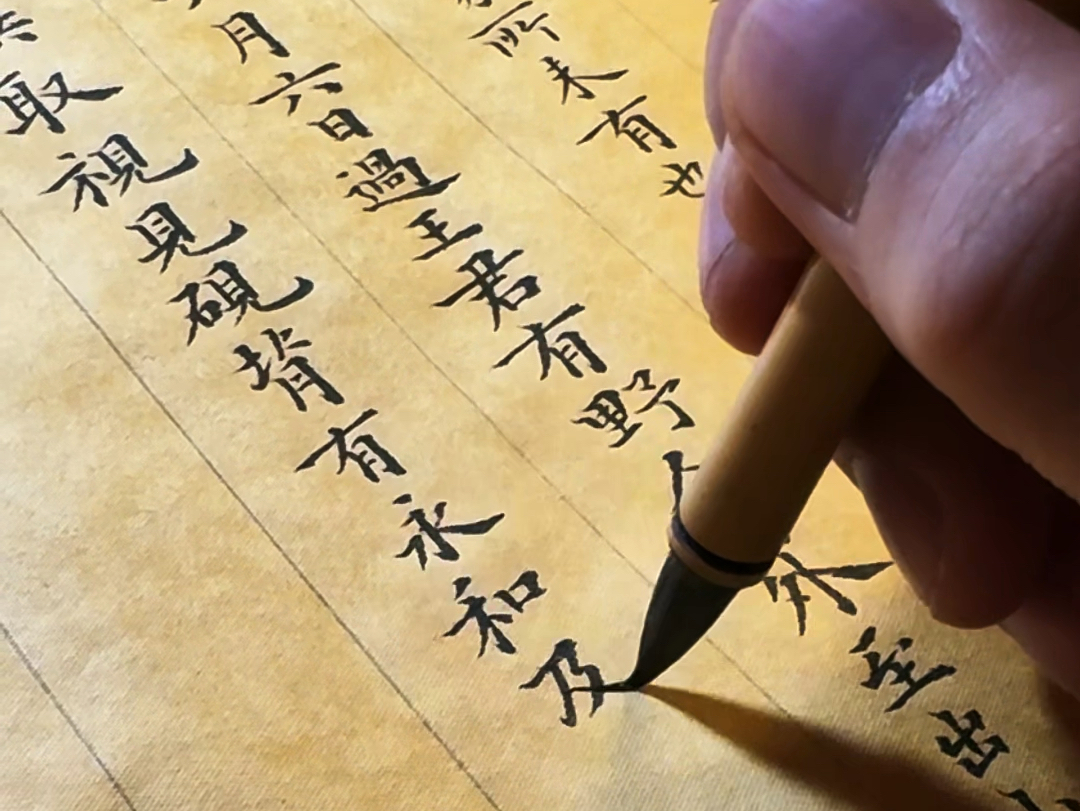 所未有也
月六日過王君有野人
外至出
取視見硯背有永和及